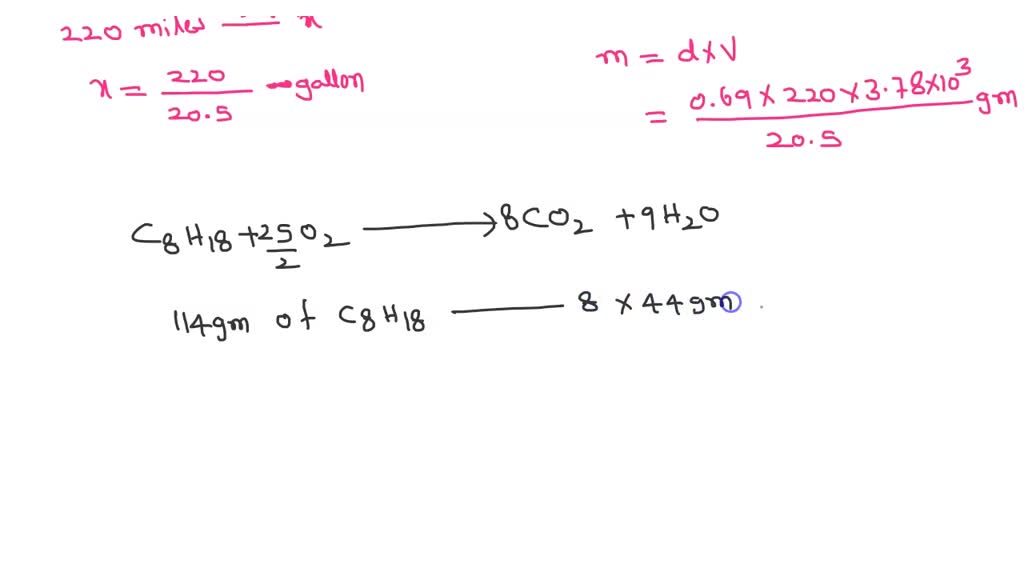 220 miles — x
x = 220/20.5 - gallon
m = d×V
= 0.69 × 220 × 3.78×10³/20.5 gm
C₈H₁₈ + 25/2 O₂ ⟶ 8CO₂ + 9H₂O
114gm of C₈H₁₈ — 8 × 44gm